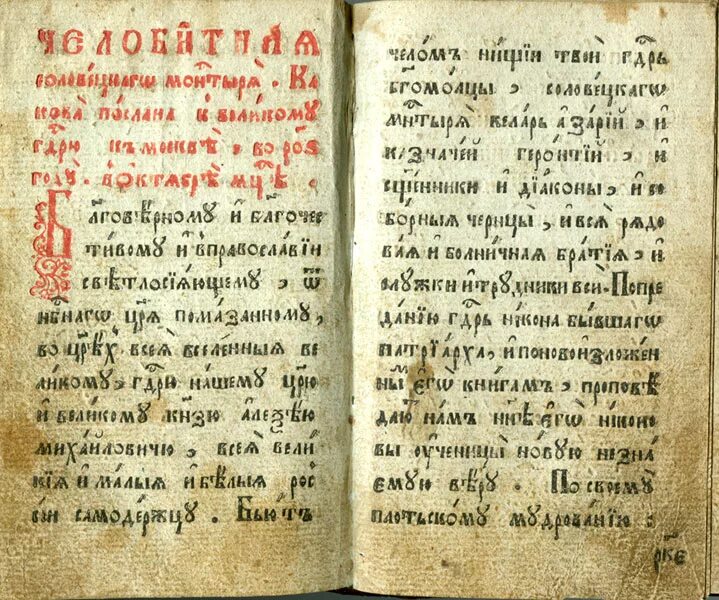 ЧЕЛОБИ́ТНАѦ
соловецкагѡ монⷭ҇тырѧ̀ . Ка
кова̀ по́слана к̾ вели́кому
гдⷭ҇рю к̾ москвѣ̀ , во роѕ҃
году̀ . в̾ октѧбрѣ̀ мцⷭ҇ѣ .
Бл҃говѣ́рному и҆ бл҃гочес
ти́вому и҆ в̾православїи
свѣтлосїѧ́ющему , ѿ
нбⷭ҇нагѡ цр҃ѧ̀ пома́занному ,
во цр҃ѣ́хъ всеѧ̀ вселе́нныѧ ве
ли́кому , гдⷭ҇рю на́шему цр҃ю
и҆ вели́кому кн҃зю а҆леѯѣ́ю
миха́йловичю , всеѧ̀ вели
кїѧ и҆ ма́лыѧ и҆ бѣ́лыѧ рос
сі́и самоде́ржцу . Бью́тъ
чело́мъ ни́щїи твои̑ гдⷭ҇рь
бг҃омо́лцы , соловецкагѡ
мнⷭ҇тырѧ̀ ке́ларь а҆за́рїй , и҆
казначе́й геро́нтїй , и҆
сщ҃е́нники и҆ дїа́коны , и҆ со
бо́рныѧ черницы̀ , и҆ всѧ̀ рѧдо
ва́ѧ и҆ болни́чнаѧ бра́тїѧ , и҆
слу́жки и҆ тру́дники вси̑ . По пре
да́нїю гдⷭ҇рь ни́кона бы́вшагѡ
патрїа́рха , и҆ по ново и҆зложе́н
нымъ є҆гѡ̀ кни́гамъ , проповѣ
даютъ на́мъ нн҃ѣ є҆гѡ̀ ни́коно
вы ѹ҆ченицы̀ но́вую незна́
емую вѣ́ру . По своему̀
пло́тьскому мудрова́нїю ,
рк҃є